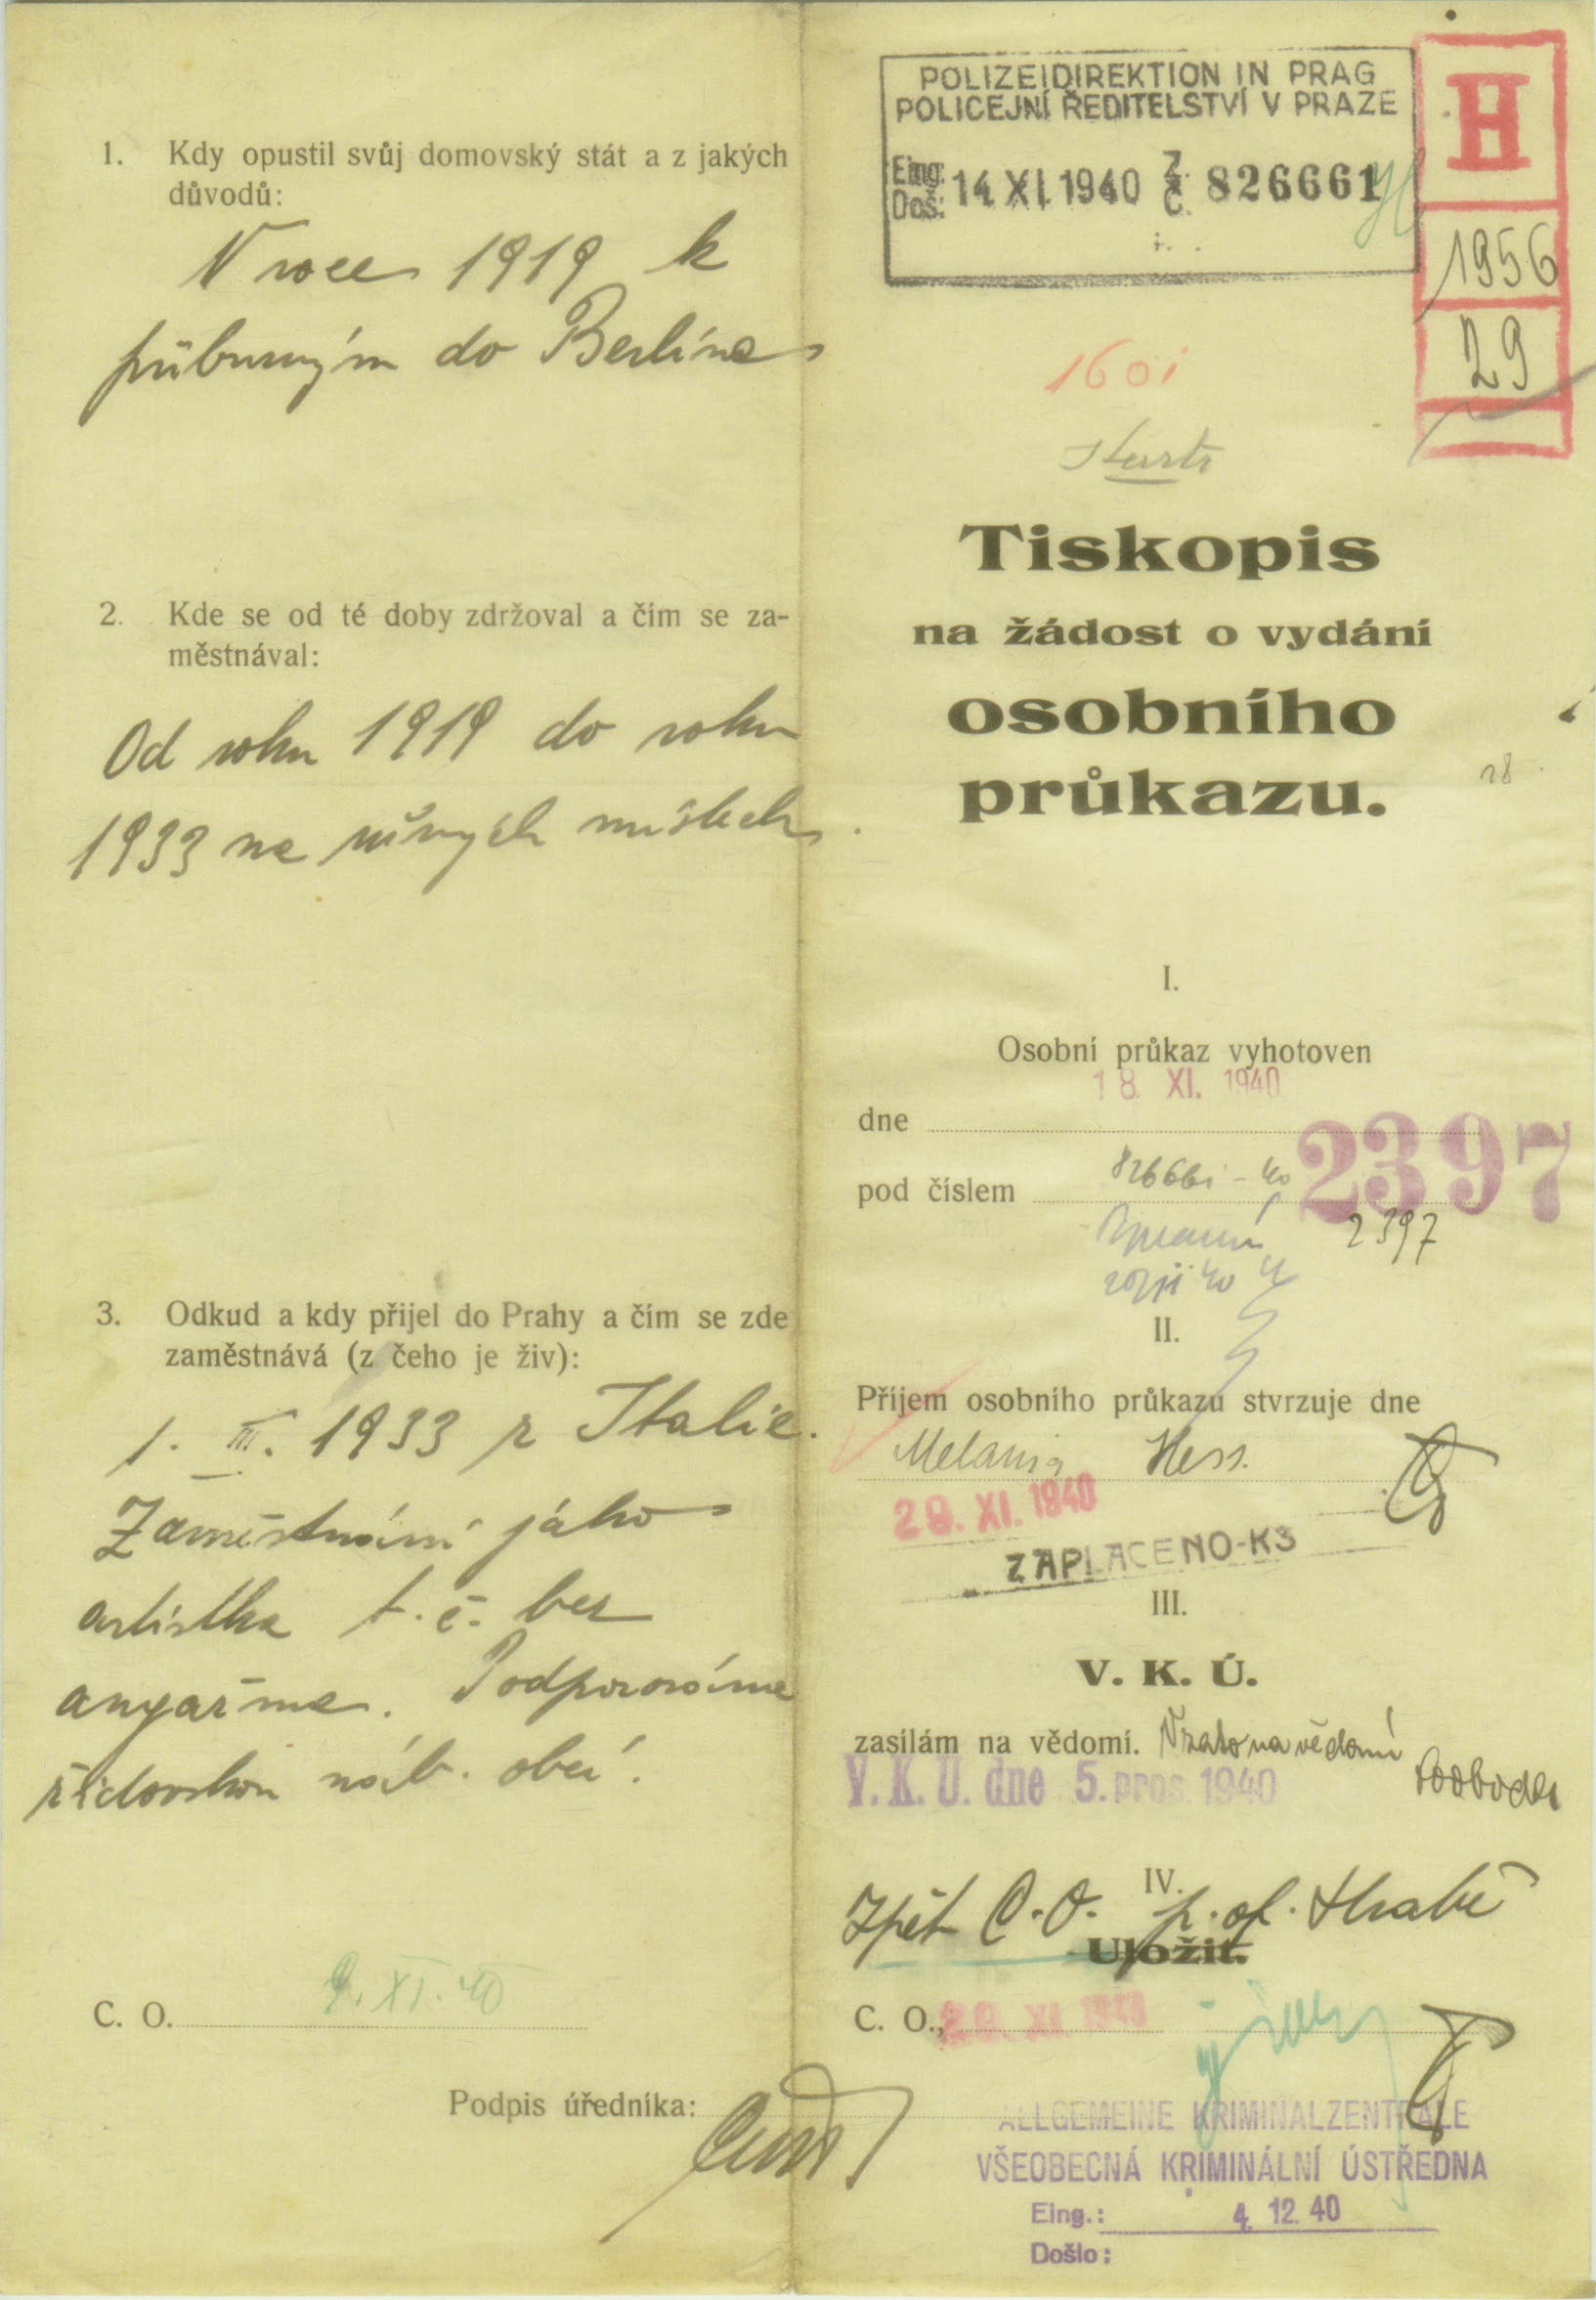 1. Kdy opustil svůj domovský stát a z jakých
důvodů:
V roce 1919 k
příbuzným do Berlína
2. Kde se od té doby zdržoval a čím se za-
městnával:
Od roku 1919 do roku
1933 na různých místech.
3. Odkud a kdy přijel do Prahy a čím se zde
zaměstnává (z čeho je živ):
1. III. 1933 z Italie.
Zaměstnání jako
artistka t. č. bez
angažmá. Podporována
židovskou náb. obcí.
C. O. 9. XI. 40
Podpis úředníka:
POLIZEIDIREKTION IN PRAG
POLICEJNÍ ŘEDITELSTVÍ V PRAZE
Eing.
Doš.: 14 XI. 1940 Z.
Č. 826661
H
1956
29
Tiskopis
na žádost o vydání
osobního
průkazu.
28
I.
Osobní průkaz vyhotoven
dne 18. XI. 1940
pod číslem 826661-40 2397
2397
II.
Příjem osobního průkazu stvrzuje dne
Melania Hess.
29. XI. 1940
ZAPLACENO-K3
III.
V. K. Ú.
zasílám na vědomí. Vzato na vědomí
V. K. U. dne 5. pros. 1940
Svoboda
IV.
Zpět C. O. p. of. Hrabě
Uložit.
C. O., 29. XI. 1940
ALLGEMEINE KRIMINALZENTRALE
VŠEOBECNÁ KRIMINÁLNÍ ÚSTŘEDNA
Eing.: 4. 12. 40
Došlo: